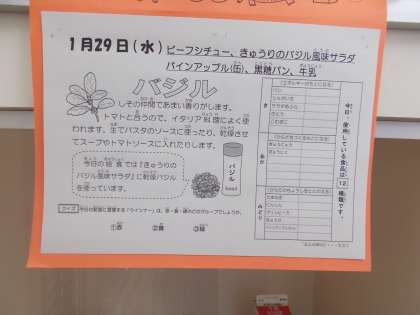 1月29日(水) ビーフシチュー、きゅうりのバジル風味サラダ
パインアップル(缶)、黒糖パン、牛乳
バジル
しその仲間であまい香りがします。
トマトと合うので、イタリア料理によく使
われます。生でパスタのソースに使ったり、乾燥させ
てスープやトマトソースに入れたりします。
今日の給食では『きゅうりの
バジル風味サラダ』に乾燥バジル
を使っています。
バジル
クイズ
①赤 ②黄 ③緑
今日、使用している食品は、12種類です。
き
パン
じゃがいも
さとう
こむぎこ
あか
ぎゅうにく
ぎゅうにゅう
みどり
たまねぎ
にんじん
グリンピース
きゅうり